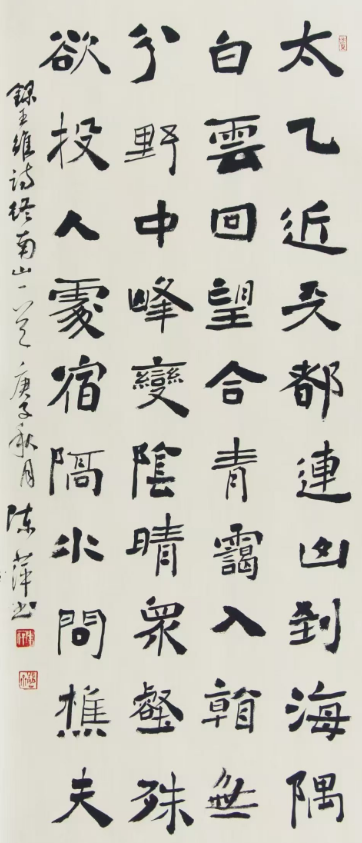 太乙近天都連山到海隅
白雲回望合青靄入看無
分野中峰變陰晴眾壑殊
欲投人處宿隔水問樵夫
錄王維詩終南山一首庚子秋月陈萍书